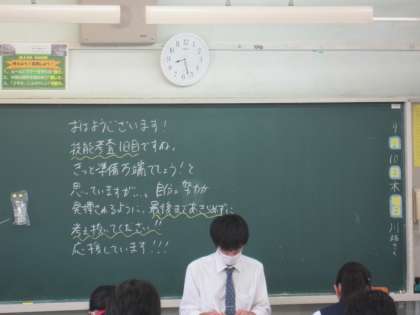 おはようございます！
技能考査1日目ですね。
きっと準備万端でしょう！と
思っていますが…、自分の努力が
発揮されるように、最後まであきらめずに
考え抜いてください!!
応援しています!!!
9
月
10
日
木
曜
日
川